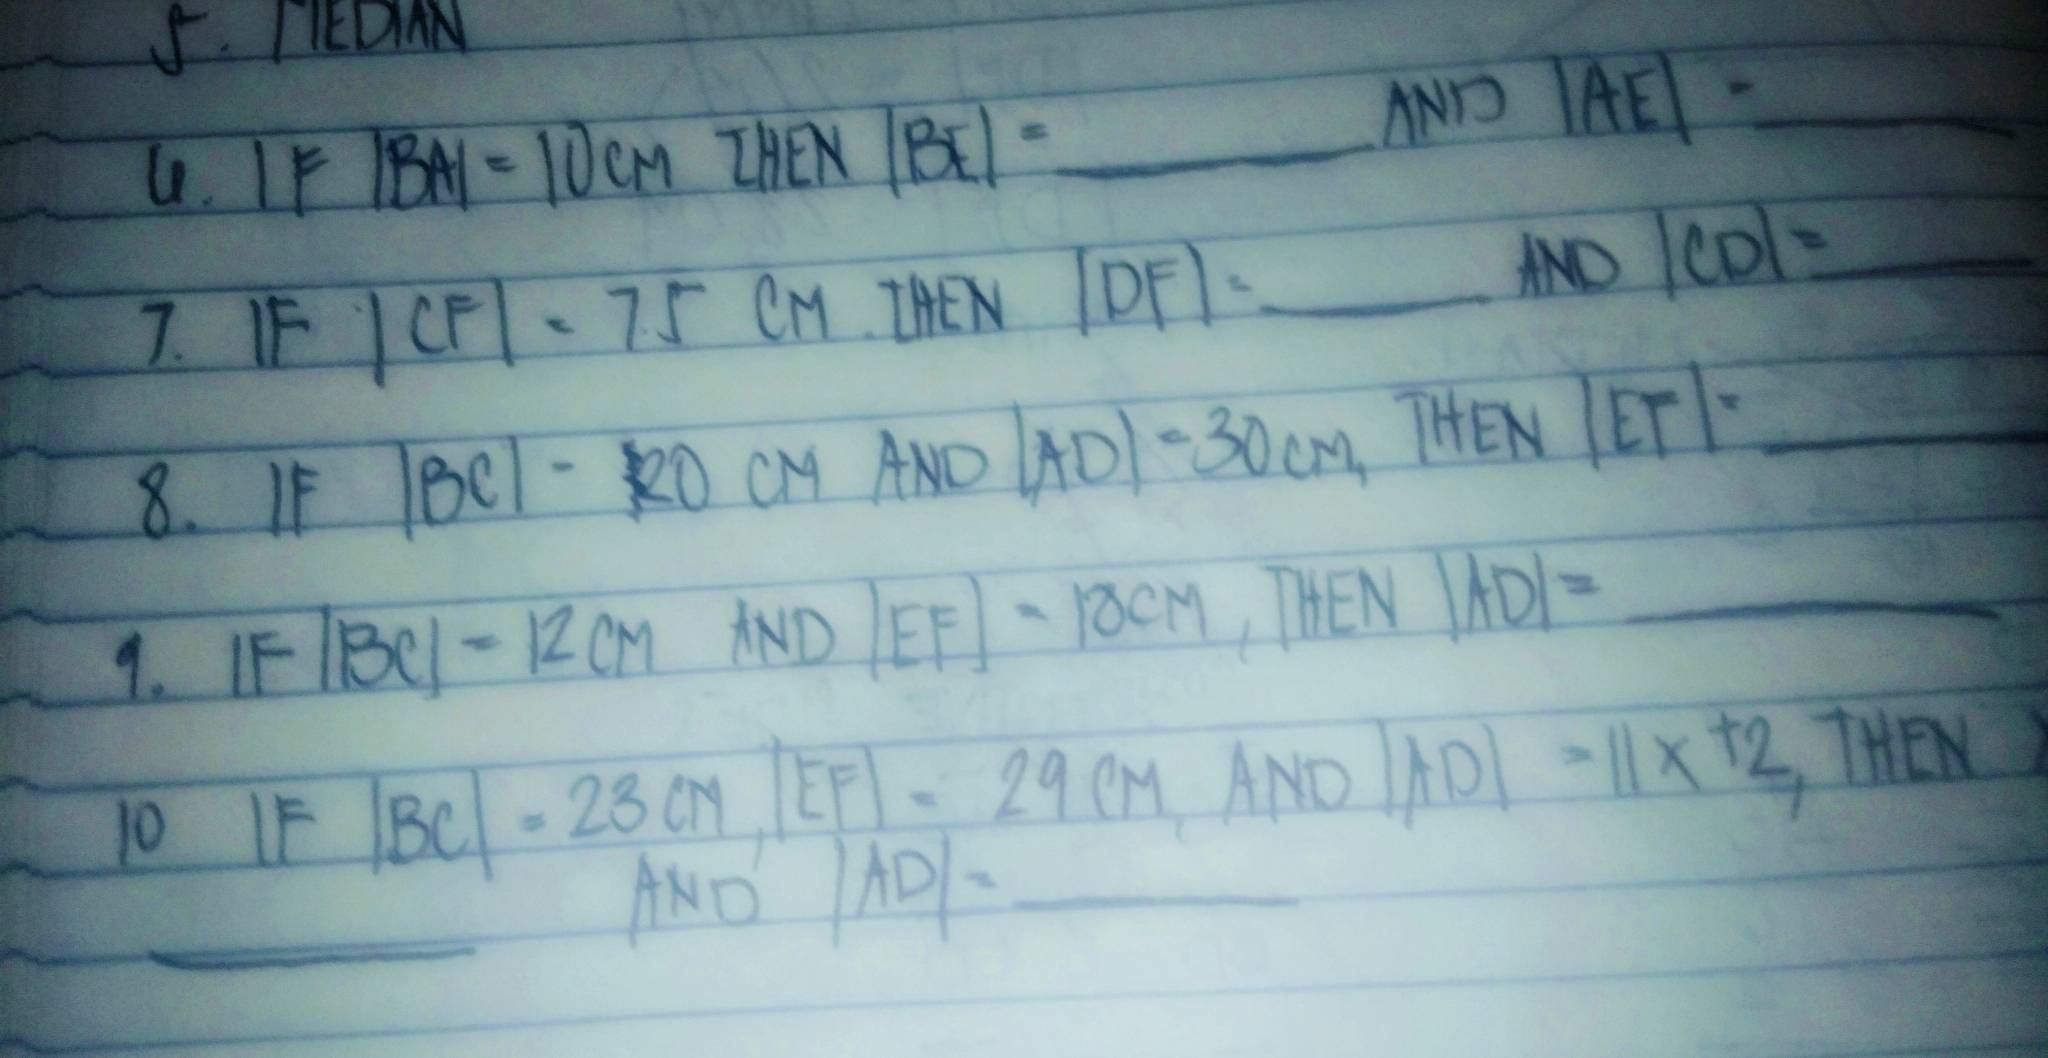 5. MEDIAN
6. IF |BA| = 10 CM THEN |BE| = ________ AND |AE| = ________
7. IF |CF| = 7.5 CM THEN |DF| = ________ AND |CD| = ________
8. IF |BC| = 20 CM AND |AD| = 30 CM, THEN |EF| = ________
9. IF |BC| = 12 CM AND |EF| = 18 CM, THEN |AD| = ________
10 IF |BC| = 23 CM, |EF| = 29 CM, AND |AD| = 11X + 2, THEN
________ AND |AD| = ________